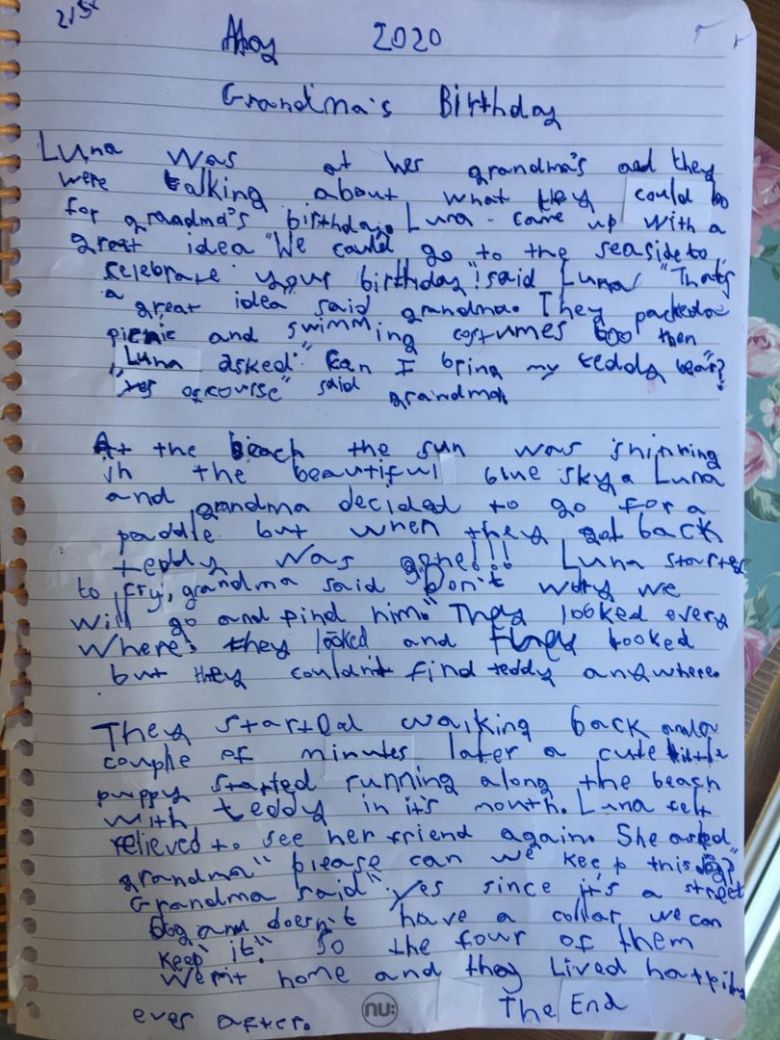 21st May 2020
Grandma's Birthday
Luna was at her grandma's and they
were talking about what they could do
for grandma's birthday. Luna came up with a
great idea "We could go to the seaside to
celebrate your birthday"! said Luna "Thats
a great idea" said grandma. They packed a
picnic and swimming costumes too then
Luna asked "Can I bring my teddy bear"?
"Yes ofcourse" said grandma
At the beach the sun was shinning
in the beautiful blue sky. Luna
and grandma decided to go for a
paddle but when they got back
teddy was gone!!! Luna started
to cry, grandma said "Don't worry we
will go and find him." They looked every
where, they looked and they looked
but they couldn't find teddy anywhere.
They started walking back and a
couple of minutes later a cute little
puppy started running along the beach
with teddy in it's mouth. Luna felt
relieved to see her friend again. She asked
grandma "please can we keep this dog"?
Grandma said "yes since it's a street
dog and doesn't have a collar we can
keep it". So the four of them
went home and they lived happily
ever after. The End
nu: